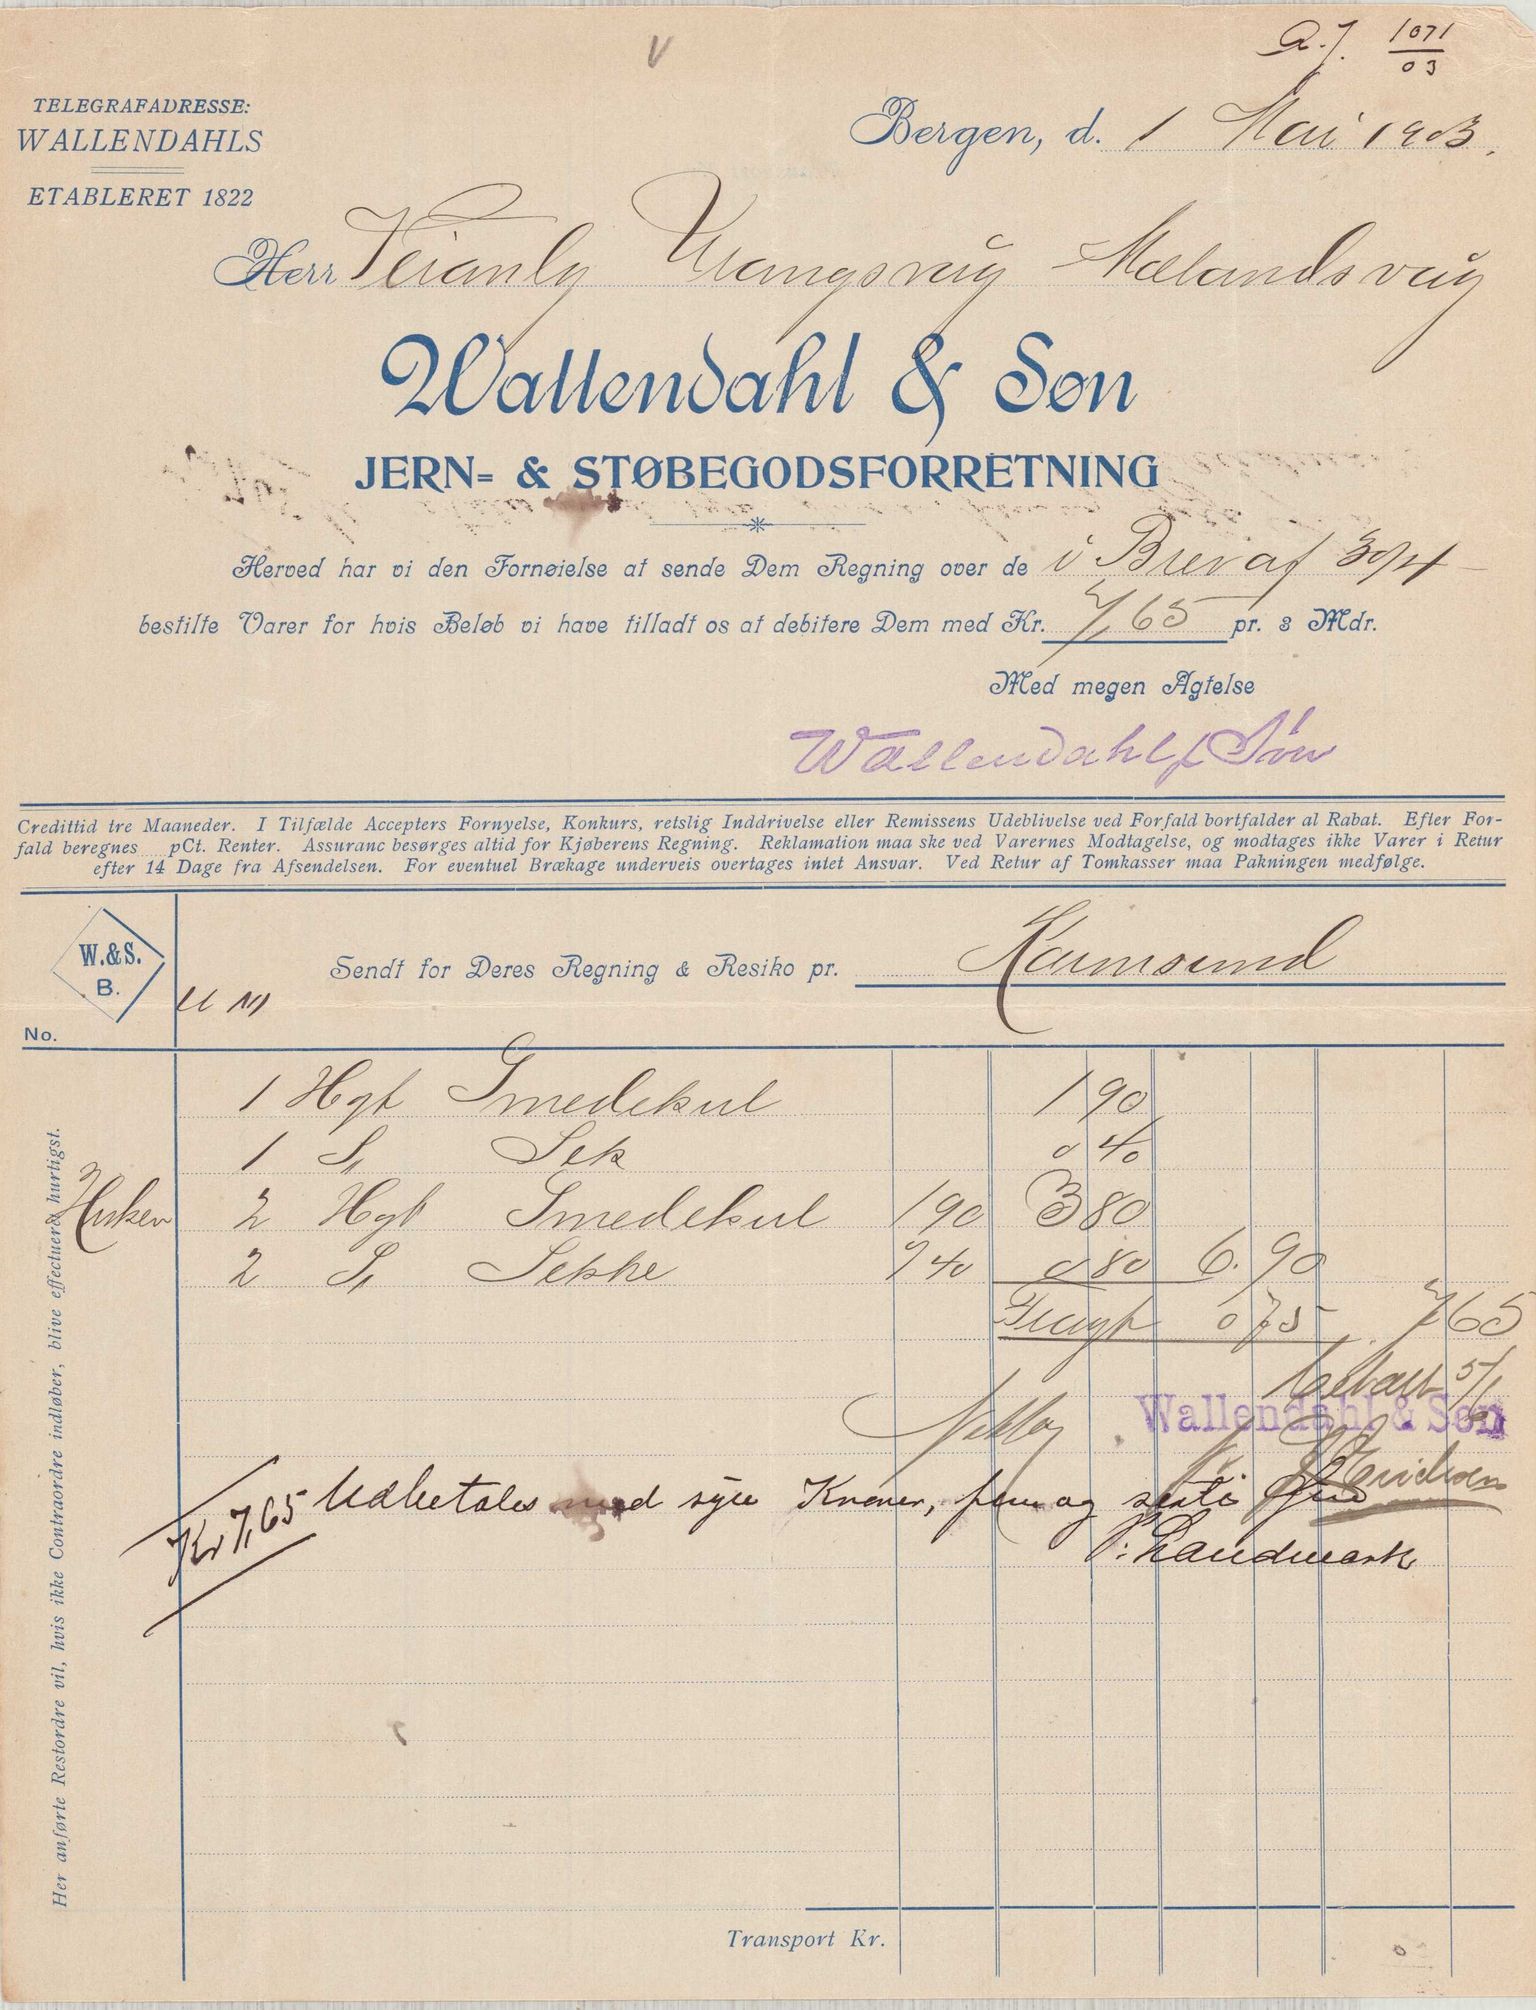 A.J. 1071/03
TELEGRAFADRESSE:
WALLENDAHLS
ETABLERET 1822
Bergen, d. 1 Mai 1903.
Herr Veianlg Vrangsvåg Mælandsvåg
Wallendahl & Søn
JERN= & STØBEGODSFORRETNING
Herved har vi den Fornøielse at sende Dem Regning over de i Brev af 30/4
bestilte Varer for hvis Beløb vi have tilladt os at debitere Dem med Kr. 7,65 pr. 3 Mdr.
Med megen Agtelse
Wallendahl & Søn
Credittid tre Maaneder. I Tilfælde Accepters Fornyelse, Konkurs, retslig Inddrivelse eller Remissens Udeblivelse ved Forfald bortfalder al Rabat. Efter For-
fald beregnes pCt. Renter. Assuranc besørges altid for Kjøberens Regning. Reklamation maa ske ved Varernes Modtagelse, og modtages ikke Varer i Retur
efter 14 Dage fra Afsendelsen. For eventuel Brækage underveis overtages intet Ansvar. Ved Retur af Tomkasser maa Pakningen medfølge.
W.&S.
B.
No.
U M
Sendt for Deres Regning & Resiko pr. Karmsund
1 Hgt Smedekul 1 90
1 S, Sek 0 40
2 Hgt Smedekul 190 3 80
2 S, Sekke 40 0 80 6.90
Fragt 0 75 7 65
Betalt 5/6
Wallendahl & Søn
Kr 7,65 Udbetales med syv Kroner, fem og seksti øre
Landmark
Her anførte Restordre vil, hvis ikke Contraordre indløber, blive effectueret hurtigst.
Transport Kr.